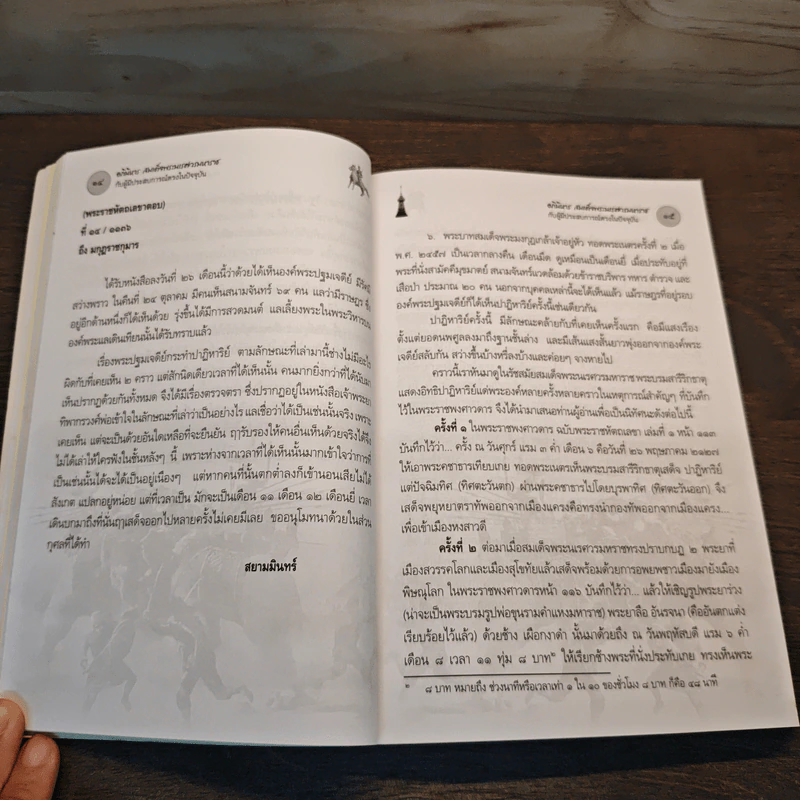 ๑๔
อภินิหาร สมเด็จพระนเรศวรมหาราช
กับผู้มีประสบการณ์ตรงในปัจจุบัน
(พระราชหัตถเลขาตอบ)
ที่ ๑๔ / ๑๑๓๖
ถึง มกุฎราชกุมาร
ได้รับหนังสือลงวันที่ ๒๖ เดือนนี้ว่าด้วยได้เห็นองค์พระปฐมเจดีย์ มีรัศมี
สว่างพราว ในคืนที่ ๒๔ ตุลาคม มีคนเห็นสนามจันทร์ ๖๙ คน แลว่ามีราษฎร ซึ่ง
อยู่อีกด้านหนึ่งก็ได้เห็นด้วย รุ่งขึ้นได้มีการสวดมนต์ แลเลี้ยงพระในพระวิหารบน
องค์พระแลเดินเทียนนั้นได้รับทราบแล้ว
เรื่องพระปฐมเจดีย์กระทำปาฏิหาริย์ ตามลักษณะที่เล่ามานี้ช่างไม่มีอะไร
ผิดกับที่เคยเห็น ๒ คราว แต่สักนิดเดียวเวลาที่ได้เห็นนั้น คนมากยิ่งกว่าที่ได้นับมา
เห็นปรากฏด้วยกันทั้งหมด จึงได้มีเรื่องตรวจตรา ซึ่งปรากฏอยู่ในหนังสือเจ้าพระยา
ทิพากรวงศ์พ่อเข้าใจในลักษณะที่เล่าว่าเป็นอย่างไร แลเชื่อว่าได้เป็นเช่นนั้นจริง เพราะ
เคยเห็น แต่จะเป็นด้วยอันใดเหลือที่จะยืนยัน ฤๅรับรองให้คนอื่นเห็นด้วยจริงได้จึง
ไม่ได้เล่าให้ใครฟังในชั้นหลังๆ นี้ เพราะห่างจากเวลาที่ได้เห็นนั้นมากเข้าใจว่าการที่
เป็นเช่นนั้นได้จะได้เป็นอยู่เนืองๆ แต่หากคนที่นั้นตกค่ำลงก็เข้านอนเสียไม่ได้
สังเกต แปลกอยู่หน่อย แต่ที่เวลาเป็น มักจะเป็นเดือน ๑๑ เดือน ๑๒ เดือนยี่ เวลา
เดินบกมาถึงที่นั้นฤๅเสด็จออกไปหลายครั้งไม่เคยมีเลย ขออนุโมทนาด้วยในส่วน
กุศลที่ได้ทำ
สยามมินทร์
อภินิหาร สมเด็จพระนเรศวรมหาราช
กับผู้มีประสบการณ์ตรงในปัจจุบัน
๑๕
๖. พระบาทสมเด็จพระมงกุฎเกล้าเจ้าอยู่หัว ทอดพระเนตรครั้งที่ ๒ เมื่อ
พ.ศ. ๒๔๕๗ เป็นเวลากลางคืน เดือนมืด ดูเหมือนเป็นเดือนยี่ เมื่อประทับอยู่ที่
พระที่นั่งสามัคคีมุขมาตย์ สนามจันทร์แวดล้อมด้วยข้าราชบริพาร ทหาร ตำรวจ และ
เสือป่า ประมาณ ๒๐ คน นอกจากบุคคลเหล่านี้จะได้เห็นแล้ว แม้ราษฎรที่อยู่รอบ
องค์พระปฐมเจดีย์ก็ได้เห็นปาฏิหาริย์ครั้งนี้เช่นเดียวกัน
ปาฏิหาริย์ครั้งนี้ มีลักษณะคล้ายกับที่เคยเห็นครั้งแรก คือมีแสงเรือง
ตั้งแต่ยอดนพศูลลงมาถึงฐานชั้นล่าง และมีเส้นแสงสั้นยาวพุ่งออกจากองค์พระ
เจดีย์สลับกัน สว่างขึ้นบ้างหรี่ลงบ้างและค่อยๆ จางหายไป
คราวนี้เราหันมาดูในรัชสมัยสมเด็จพระนเรศวรมหาราช พระบรมสารีริกธาตุ
แสดงอิทธิปาฏิหาริย์แด่พระองค์หลายครั้งหลายคราวในเหตุการณ์สำคัญๆ ที่บันทึก
ไว้ในพระราชพงศาวดาร จึงได้นำมาเสนอท่านผู้อ่านเพื่อเป็นนิทัศนะดังต่อไปนี้
ครั้งที่ ๑ ในพระราชพงศาวดาร ฉบับพระราชหัตถเลขา เล่มที่ ๑ หน้า ๑๑๓
บันทึกไว้ว่า... ครั้ง ณ วันศุกร์ แรม ๓ ค่ำ เดือน ๖ คือวันที่ ๒๖ พฤษภาคม ๒๑๒๗
ให้เอาพระคชาธารเทียบเกย ทอดพระเนตรเห็นพระบรมสารีริกธาตุเสด็จ ปาฏิหาริย์
แต่ปัจฉิมทิศ (ทิศตะวันตก) ผ่านพระคชาธารไปโดยบุรพาทิศ (ทิศตะวันออก) จึง
เสด็จพยุหยาตราทัพออกจากเมืองแครงคือทรงนำกองทัพออกจากเมืองแครง...
เพื่อเข้าเมืองหงสาวดี
ครั้งที่ ๒ ต่อมาเมื่อสมเด็จพระนเรศวรมหาราชทรงปราบกบฏ ๒ พระยาที่
เมืองสวรรคโลกและเมืองสุโขทัยแล้วเสด็จพร้อมด้วยการอพยพชาวเมืองมายังเมือง
พิษณุโลก ในพระราชพงศาวดารหน้า ๑๑๖ บันทึกไว้ว่า... แล้วให้เชิญรูปพระยาร่วง
(น่าจะเป็นพระบรมรูปพ่อขุนรามคำแหงมหาราช) พระยาลือ อันรจนา (คืออันตกแต่ง
เรียบร้อยไว้แล้ว) ด้วยช้าง เผือกงาดำ นั้นมาด้วยถึง ณ วันพฤหัสบดี แรม ๖ ค่ำ
เดือน ๘ เวลา ๑๑ ทุ่ม ๘ บาท๒ ให้เรียกช้างพระที่นั่งประทับเกย ทรงเห็นพระ
๒ ๘ บาท หมายถึง ช่วงนาทีหรือเวลาเท่า ๑ ใน ๑๐ ของชั่วโมง ๘ บาท ก็คือ ๔๘ นาที